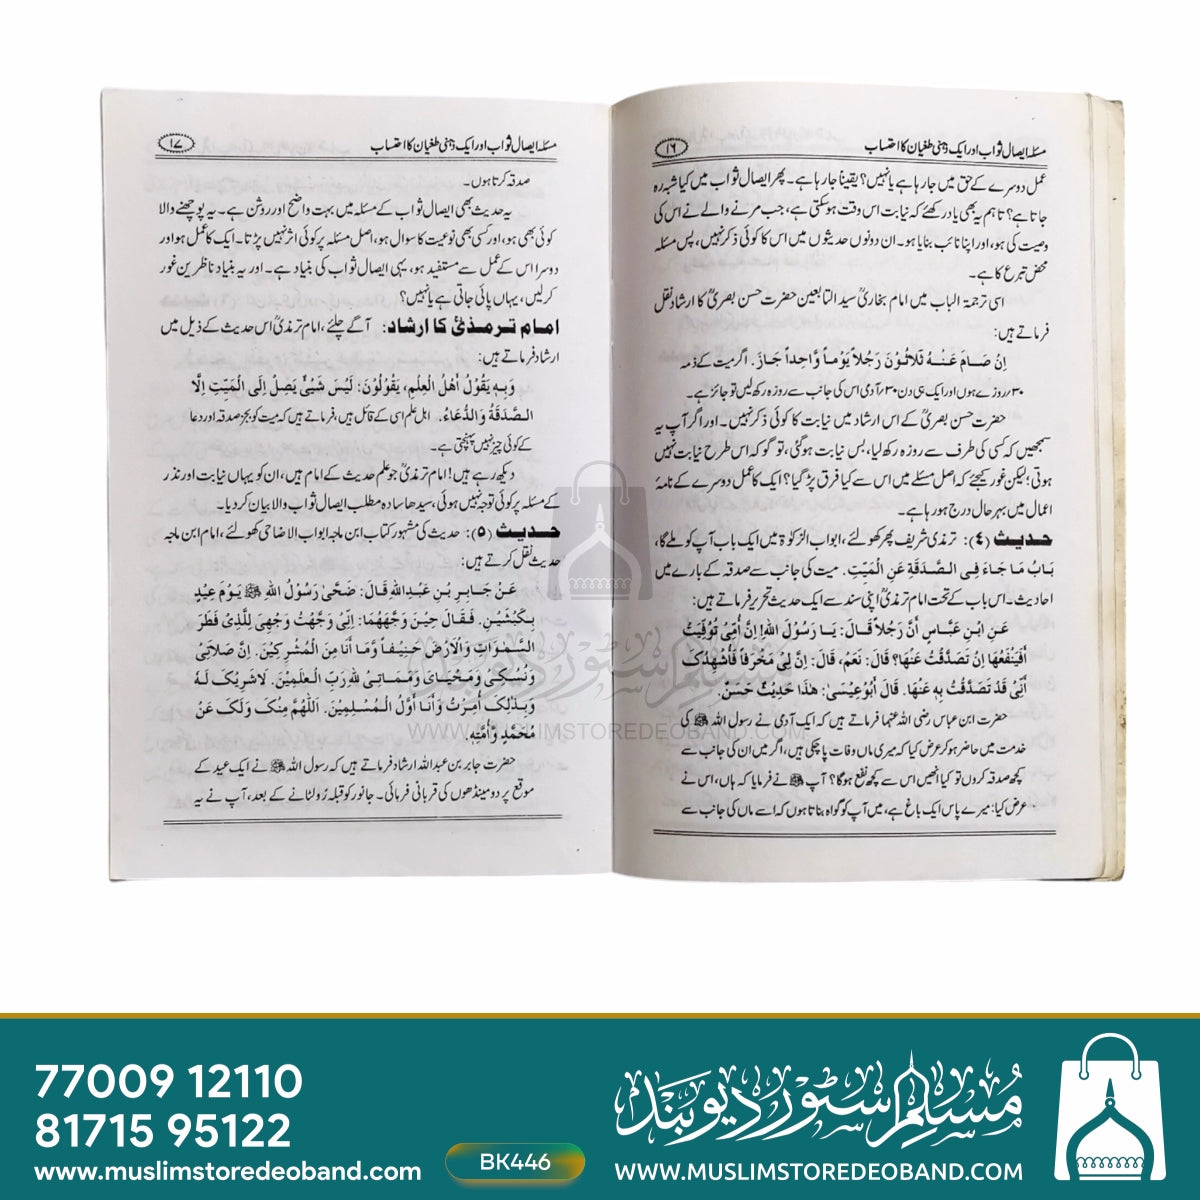 مسئلہ ایصال ثواب اور ایک ذہنی طغیان کا احتساب
۱۶
عمل دوسرے کے حق میں جارہا ہے یا نہیں؟ یقیناً جارہا ہے۔ پھر ایصال ثواب میں کیا شبہ رہ
جاتا ہے؟ تاہم یہ بھی یاد رکھئے کہ نیابت اس وقت ہوسکتی ہے، جب مرنے والے نے اس کی
وصیت کی ہو، اور اپنا نائب بنایا ہو۔ ان دونوں حدیثوں میں اس کا کوئی ذکر نہیں، پس مسئلہ
محض تبرع کا ہے۔
اسی ترجمۃ الباب میں امام بخاریؒ سید التابعین حضرت حسن بصریؒ کا ارشاد نقل
فرماتے ہیں:
اِنْ صَـامَ عَنْـهُ ثَلَاثُوْنَ رَجُلاً یَوْمـاً وَّاحِداً جَازَ۔ اگر میت کے ذمہ
۳۰؍روزے ہوں اور ایک ہی دن ۳۰؍آدمی اس کی جانب سے روزہ رکھ لیں تو جائز ہے۔
حضرت حسن بصریؒ کے اس ارشاد میں نیابت کا کوئی ذکر نہیں۔ اور اگر آپ یہ
سمجھیں کہ کسی کی طرف سے روزہ رکھ لیا، بس نیابت ہوگئی، تو گو کہ اس طرح نیابت نہیں
ہوتی؛ لیکن غور کیجئے کہ اصل مسئلے میں اس سے کیا فرق پڑ گیا؟ ایک کا عمل دوسرے کے نامۂ
اعمال میں بہر حال درج ہورہا ہے۔
حدیث (۴): ترمذی شریف پھر کھولئے، ابواب الزکوٰۃ میں ایک باب آپ کو ملے گا،
بَابُ مَا جَاءَ فِی الصَّدَقَةِ عَنِ الْمَیِّتِ۔ میت کی جانب سے صدقہ کے بارے میں
احادیث۔ اس باب کے تحت امام ترمذیؒ اپنی سند سے ایک حدیث تحریر فرماتے ہیں:
عَنِ ابْنِ عَبَّاسٍ أَنَّ رَجُلاً قَالَ: یَا رَسُوْلَ اللهِ! اِنَّ أُمِّیْ تُوُفِّیَتْ
أَفَیَنْفَعُهَا إِنْ تَصَدَّقْتُ عَنْهَا؟ قَالَ: نَعَمْ، قَالَ: اِنَّ لِیْ مَخْرَفاً فَأُشْهِدُکَ
أَنِّیْ قَدْ تَصَدَّقْتُ بِهِ عَنْهَا۔ قَالَ أَبُوْعِیْسَیٰ: هٰذَا حَدِیْثٌ حَسَنٌ۔
حضرت ابن عباس رضی اللہ عنہما فرماتے ہیں کہ ایک آدمی نے رسول اللہ ﷺ کی
خدمت میں حاضر ہوکر عرض کیا کہ میری ماں وفات پاچکی ہیں، اگر میں ان کی جانب سے
کچھ صدقہ کروں تو کیا انھیں اس سے کچھ نفع ہوگا؟ آپ ﷺ نے فرمایا کہ ہاں، اس نے
عرض کیا: میرے پاس ایک باغ ہے، میں آپ کو گواہ بناتا ہوں کہ اسے ماں کی جانب سے
مسئلہ ایصال ثواب اور ایک ذہنی طغیان کا احتساب
۱۷
صدقہ کرتا ہوں۔
یہ حدیث بھی ایصال ثواب کے مسئلہ میں بہت واضح اور روشن ہے۔ یہ پوچھنے والا
کوئی بھی ہو، اور کسی بھی نوعیت کا سوال ہو، اصل مسئلہ پر کوئی اثر نہیں پڑتا۔ ایک کا عمل ہو اور
دوسرا اس کے عمل سے مستفید ہو، یہی ایصال ثواب کی بنیاد ہے۔ اور یہ بنیاد ناظرین غور
کرلیں، یہاں پائی جاتی ہے یا نہیں؟
امام ترمذیؒ کا ارشاد: آگے چلئے، امام ترمذیؒ اس حدیث کے ذیل میں
ارشاد فرماتے ہیں:
وَبِهٖ یَقُوْلُ أَهْلُ الْعِلْمِ، یَقُوْلُوْنَ: لَیْسَ شَیْئٌ یَصِلُ اِلَی الْمَیِّتِ اِلَّا
الصَّدَقَةُ وَالدُّعَاءُ۔ اہل علم اسی کے قائل ہیں، فرماتے ہیں کہ میت کو بجز صدقہ اور دعا
کے کوئی چیز نہیں پہنچتی ہے۔
دیکھ رہے ہیں! امام ترمذیؒ جو علم حدیث کے امام ہیں، ان کو یہاں نیابت اور نذر
کے مسئلہ پر کوئی توجہ نہیں ہوئی، سیدھا سادہ مطلب ایصال ثواب والا بیان کردیا۔
حدیث (۵): حدیث کی مشہور کتاب ابن ماجہ ابواب الاضاحی کھولئے، امام ابن ماجہ
حدیث نقل کرتے ہیں:
عَنْ جَابِرِ بْنِ عَبْدِاللهِ قَالَ: ضَحّٰی رَسُوْلُ اللهِ ﷺ یَوْمَ عِیْدٍ
بِکَبْشَیْنِ۔ فَقَالَ حِیْنَ وَجَّهَهُمَا: اِنِّیْ وَجَّهْتُ وَجْهِیَ لِلَّذِیْ فَطَرَ
السَّمٰوَاتِ وَالْاَرْضَ حَنِیْفاً وَّمَا أَنَا مِنَ الْمُشْرِکِیْنَ۔ اِنَّ صَلَاتِیْ
وَنُسُکِیْ وَمَحْیَایَ وَمَمَاتِیْ لِلّٰهِ رَبِّ الْعٰلَمِیْنَ۔ لَا شَرِیْکَ لَهٗ
وَبِذٰلِکَ أُمِرْتُ وَأَنَا أَوَّلُ الْمُسْلِمِیْنَ۔ اَللّٰهُمَّ مِنْکَ وَلَکَ عَنْ
مُحَمَّدٍ وَّأُمَّتِهٖ۔
حضرت جابر بن عبداللہ ارشاد فرماتے ہیں کہ رسول اللہ ﷺ نے ایک عید کے
موقع پر دو مینڈھوں کی قربانی فرمائی۔ جانور کو قبلہ رُو لٹانے کے بعد، آپ نے یہ
مسلم سٹور دیوبند
WWW.MUSLIMSTOREDEOBAND.COM
77009 12110
81715 95122
www.muslimstoredeoband.com
BK446
مسلم سٹور دیوبند
WWW.MUSLIMSTOREDEOBAND.COM